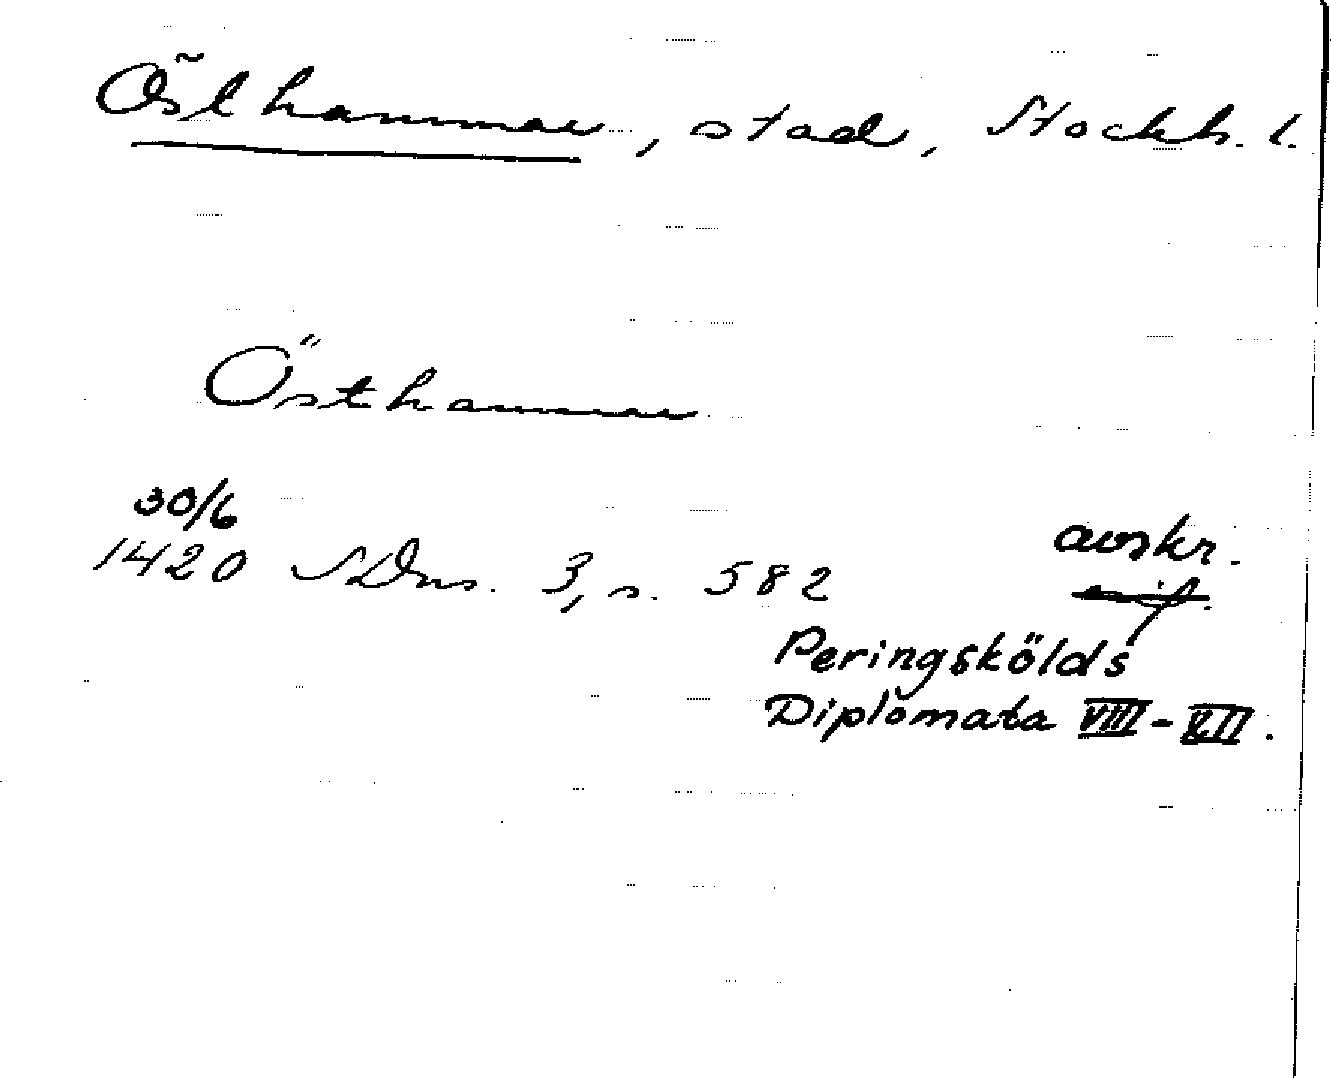 Östhammar, stad, Stockh. l.
Östhammar
30/6
1420 SDns. 3, s. 582
avskr.
Peringskölds
Diplomata VIII-XII.